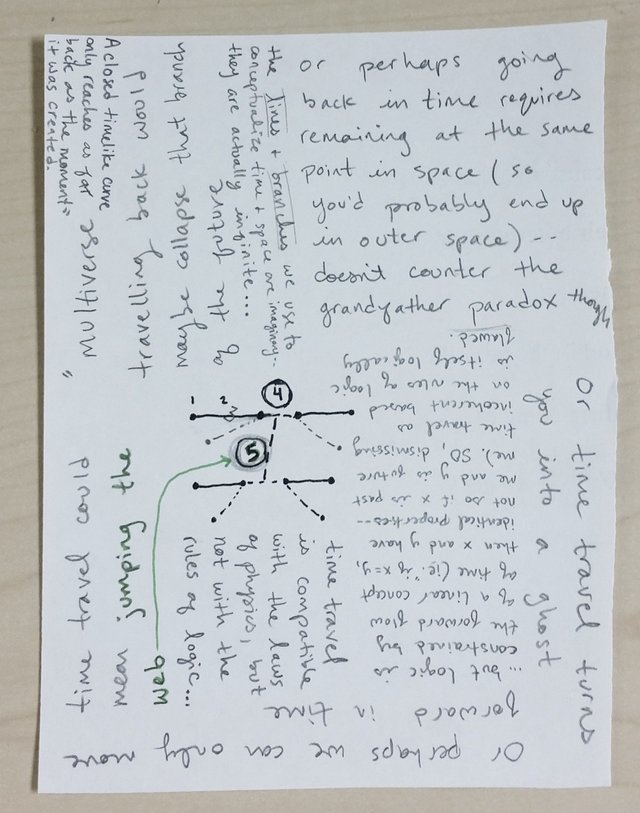 or perhaps going
back in time requires
remaining at the same
point in space (so
you'd probably end up
in outer space) --
doesn't counter the
grandfather paradox though
Or time travel turns
you into a ghost
Or perhaps we can only move
forward in time
time travel could
mean jumping the
web
"multiverse"
travelling back would
maybe collapse that branch
of the future
A closed timelike curve
only reaches as far
back as the moment
it was created.
the lines + branches we use to
conceptualize time + space are imaginary..
they are actually infinite...
time travel
is compatible
with the laws
of physics, but
not with the
rules of logic...
... but logic is
constrained by
the forward flow
of a linear concept
of time (ie., "if x=y,
then x and y have
identical properties--
not so if x is past
me and y is future
me). SO, dismissing
time travel as
incoherent based
on the rules of logic
is itself logically
flawed.
4
5